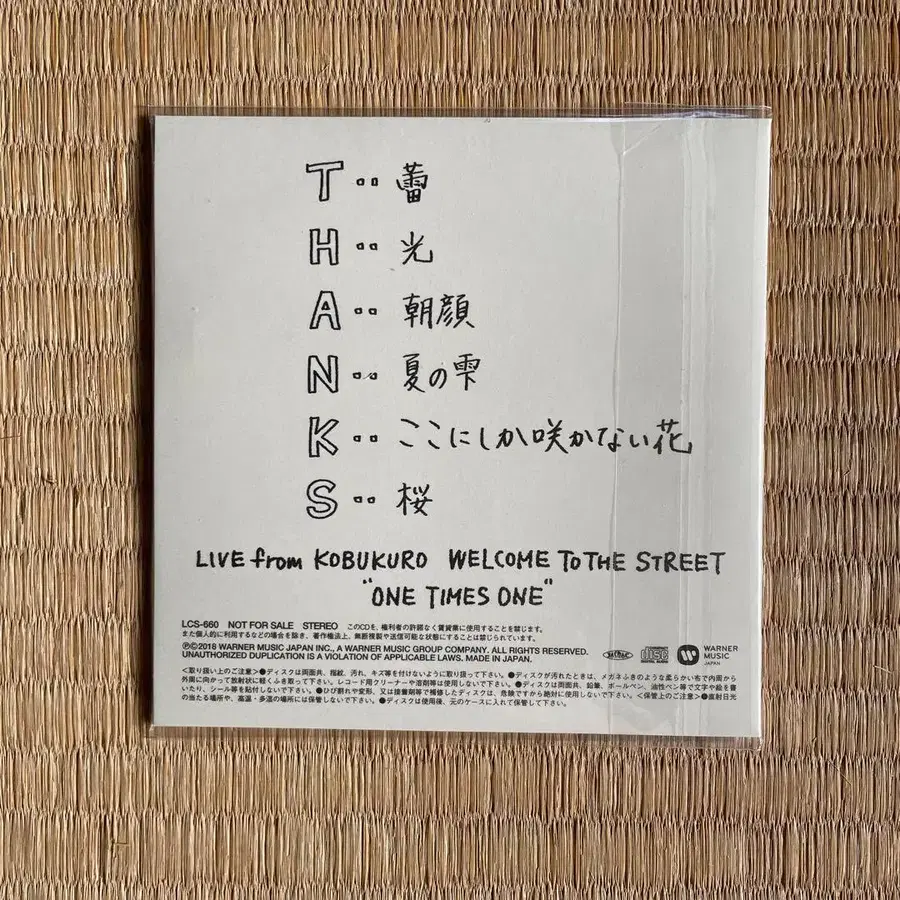 T‥蕾
H‥光
A‥朝顔
N‥夏の雫
K‥ここにしか咲かない花
S‥桜
LIVE from KOBUKURO WELCOME TO THE STREET
"ONE TIMES ONE"
LCS-660 NOT FOR SALE STEREO このCDを、権利者の許諾なく賃貸業に使用することを禁じます。
また個人的に利用するなどの場合を除き、著作権法上、無断複製や送信可能な状態にすることは禁じられています。
℗©2018 WARNER MUSIC JAPAN INC., A WARNER MUSIC GROUP COMPANY. ALL RIGHTS RESERVED.
UNAUTHORIZED DUPLICATION IS A VIOLATION OF APPLICABLE LAWS. MADE IN JAPAN.
WARNER
MUSIC
JAPAN
<取り扱い上のご注意>●ディスクは両面共、指紋、汚れ、キズ等を付けないように取り扱って下さい。●ディスクが汚れたときは、メガネふきのような柔らかい布で内周から
外周に向かって放射状に軽くふき取って下さい。レコード用クリーナーや溶剤等は使用しないで下さい。●ディスクは両面共、鉛筆、ボールペン、油性ペン等で文字や絵を書
いたり、シール等を貼付しないで下さい。●ひび割れや変形、又は接着剤等で補修したディスクは、危険ですから絶対に使用しないで下さい。<保管上のご注意>●直射日光
の当たる場所や、高温・多湿の場所には保管しないで下さい。●ディスクは使用後、元のケースに入れて保管して下さい。